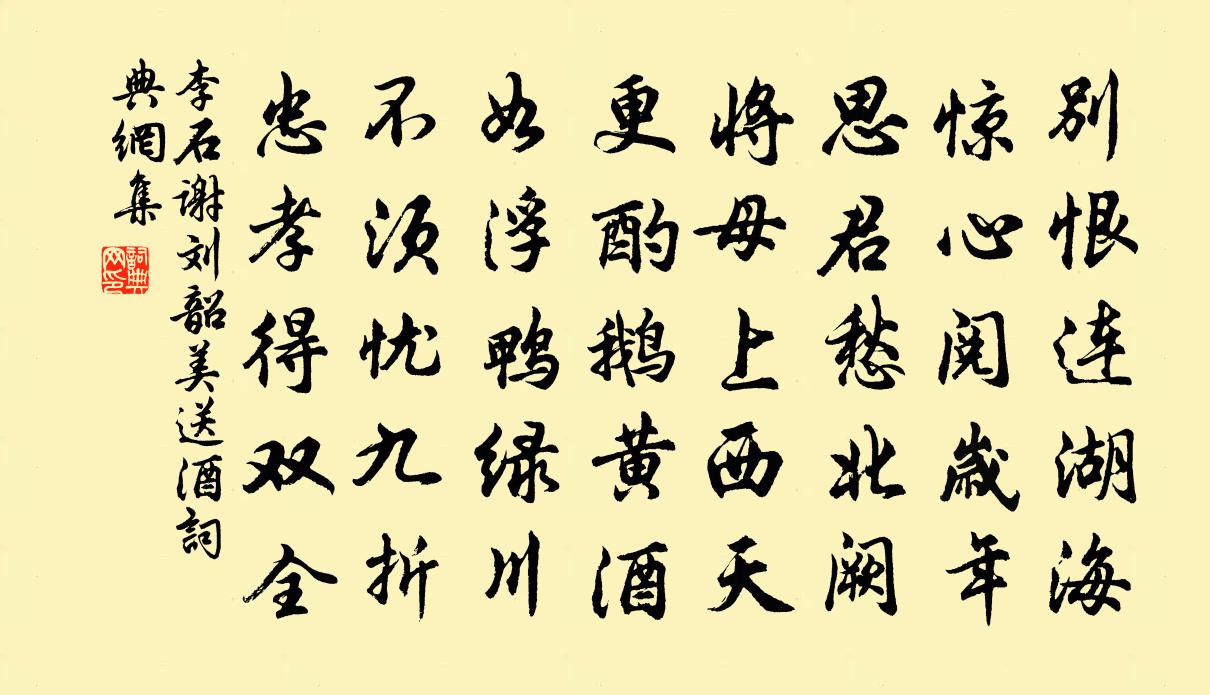 别恨连湖海
惊心阅岁年
思君愁北阙
将母上西天
更酌鹅黄酒
如浮鸭绿川
不须忧九折
忠孝得双全
李石谢刘韶美送酒詞
典網集
詞典网印